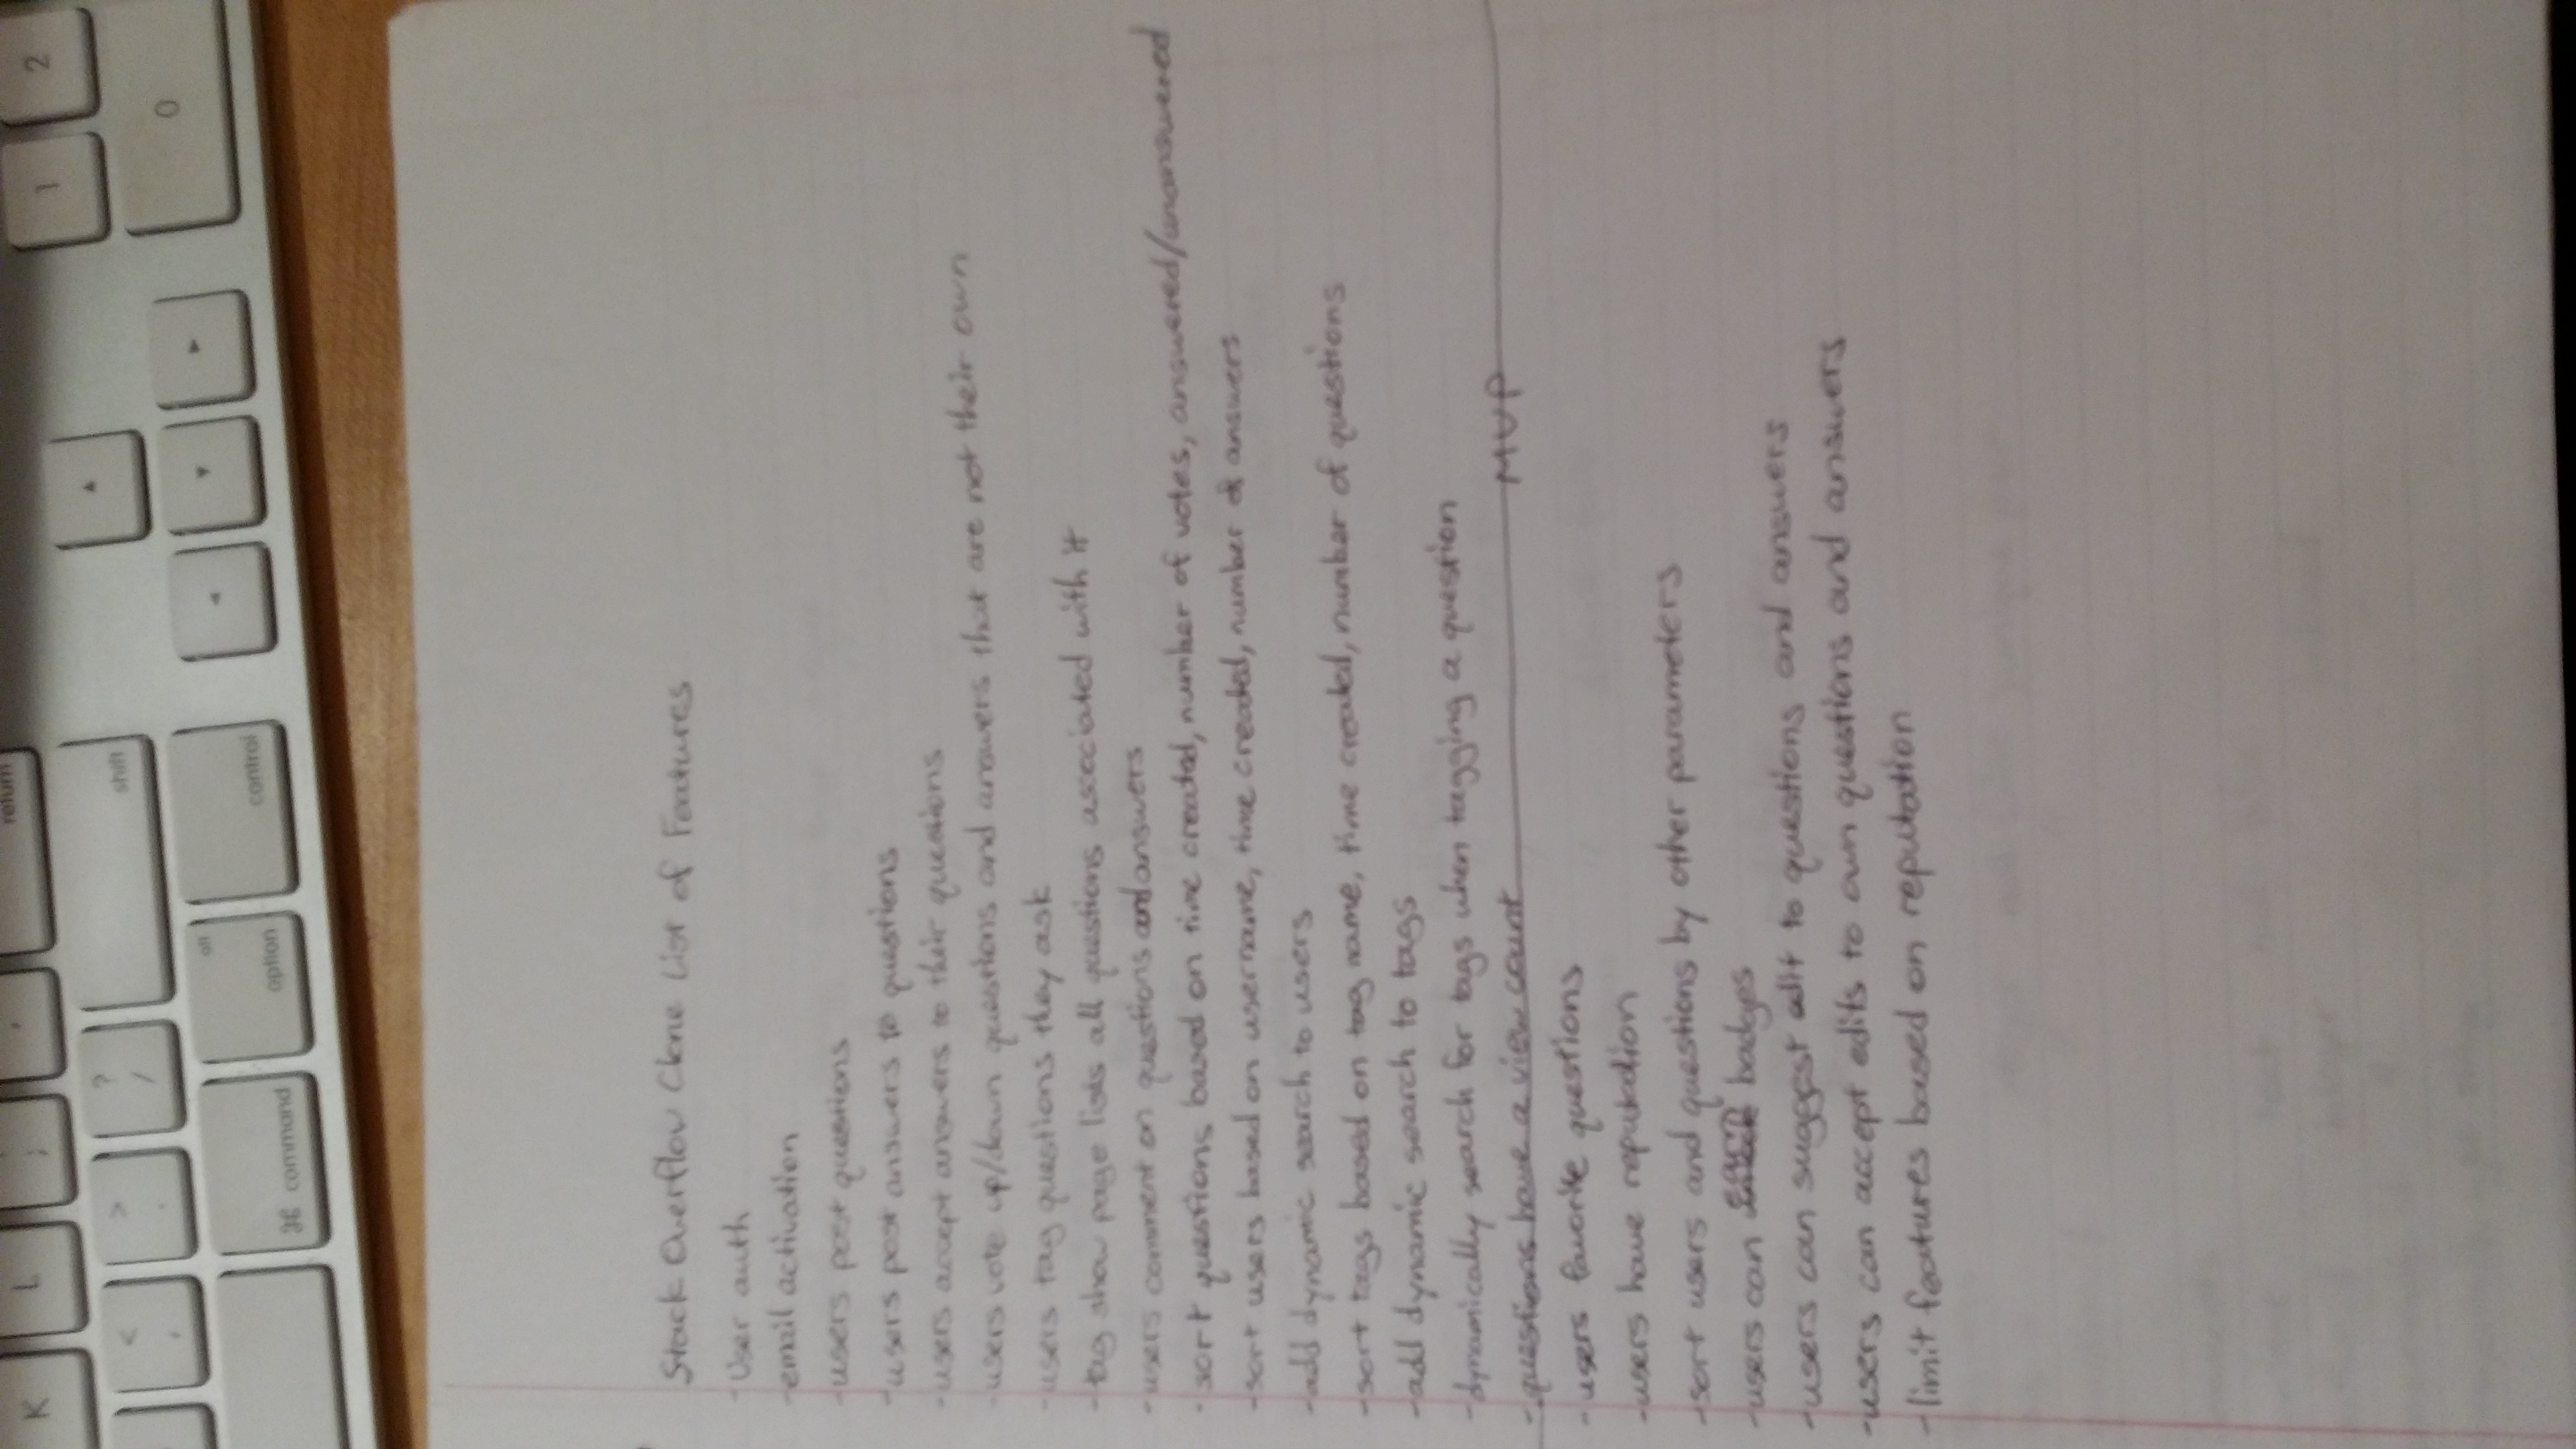 K L ; ' return 1 2
< , > . ? / shift ▲
⌘ command alt option control ◄ ▼ ► 0
Stack Overflow Clone List of Features
-User auth
-email activation
-users post questions
-users post answers to questions
-users accept answers to their questions
-users vote up/down questions and answers that are not their own
-users tag questions they ask
-tag show page lists all questions associated with it
-users comment on questions and answers
-sort questions based on time created, number of votes, answered/unanswered
-sort users based on username, time created, number of answers
-add dynamic search to users
-sort tags based on tag name, time created, number of questions
-add dynamic search to tags
-dynamically search for tags when tagging a question
-questions have a view count MVP
-users favorite questions
-users have reputation
-sort users and questions by other parameters
-users can earn badges
-users can suggest edit to questions and answers
-users can accept edits to own questions and answers
-limit features based on reputation